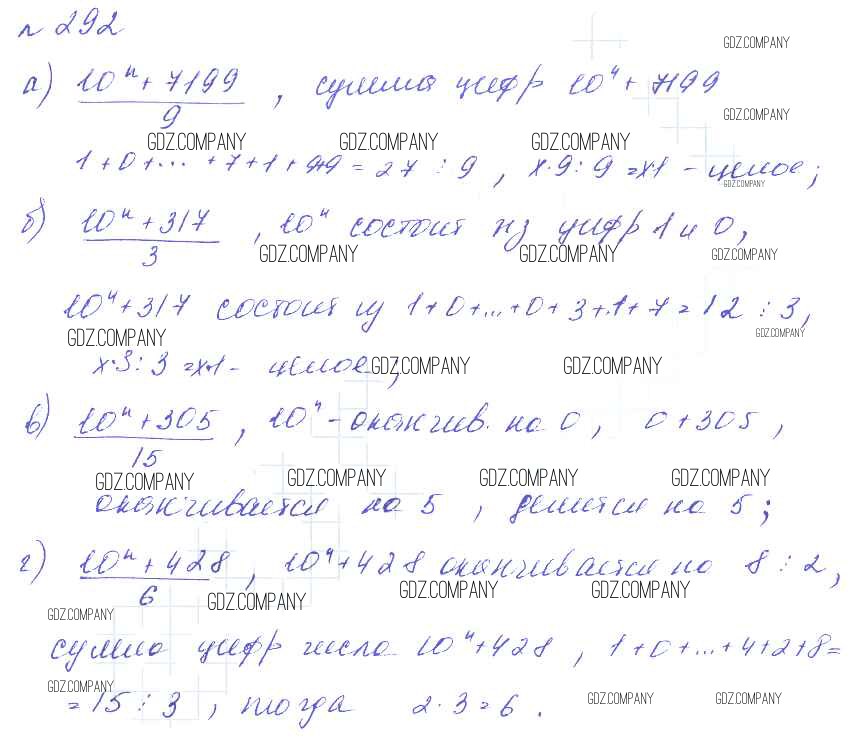 № 292
GDZ.COMPANY
а) 10ⁿ + 7199 / 9 , сумма цифр 10ⁿ + 7199
GDZ.COMPANY
GDZ.COMPANY GDZ.COMPANY GDZ.COMPANY
1 + 0 + ... + 7 + 1 + 9+9 = 27 ⋮ 9 , x·9 : 9 = x·1 - целое ;
GDZ.COMPANY
б) 10ⁿ + 317 / 3 , 10ⁿ состоит из цифр 1 и 0,
GDZ.COMPANY GDZ.COMPANY GDZ.COMPANY
10ⁿ + 317 состоит из 1 + 0 + ... + 0 + 3 + 1 + 7 = 12 ⋮ 3,
GDZ.COMPANY GDZ.COMPANY
x·3 : 3 = x·1 - целое ;
GDZ.COMPANY GDZ.COMPANY
в) 10ⁿ + 305 / 15 , 10ⁿ - оканчив. на 0 , 0 + 305 ,
GDZ.COMPANY GDZ.COMPANY GDZ.COMPANY GDZ.COMPANY
оканчивается на 5 , делится на 5 ;
г) 10ⁿ + 428 / 6 , 10ⁿ + 428 оканчивается на 8 ⋮ 2 ,
GDZ.COMPANY GDZ.COMPANY GDZ.COMPANY GDZ.COMPANY
сумма цифр числа 10ⁿ + 428 , 1 + 0 + ... + 4 + 2 + 8 =
GDZ.COMPANY GDZ.COMPANY GDZ.COMPANY
= 15 ⋮ 3 , тогда 2 · 3 = 6 .